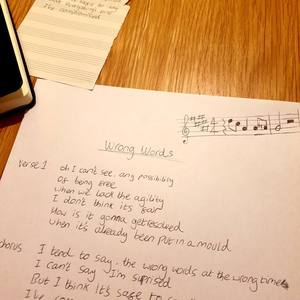 everything and
I've compromised
Wrong Words
Verse 1
oh I can't see, any possibility
Of being free
When we lack the agility
I don't think it's fair
How is it gonna get resolved
When it's already been put in a mould
chorus
I tend to say, the wrong words at the wrong times
I can't say I'm suprised
But I think it's safe to